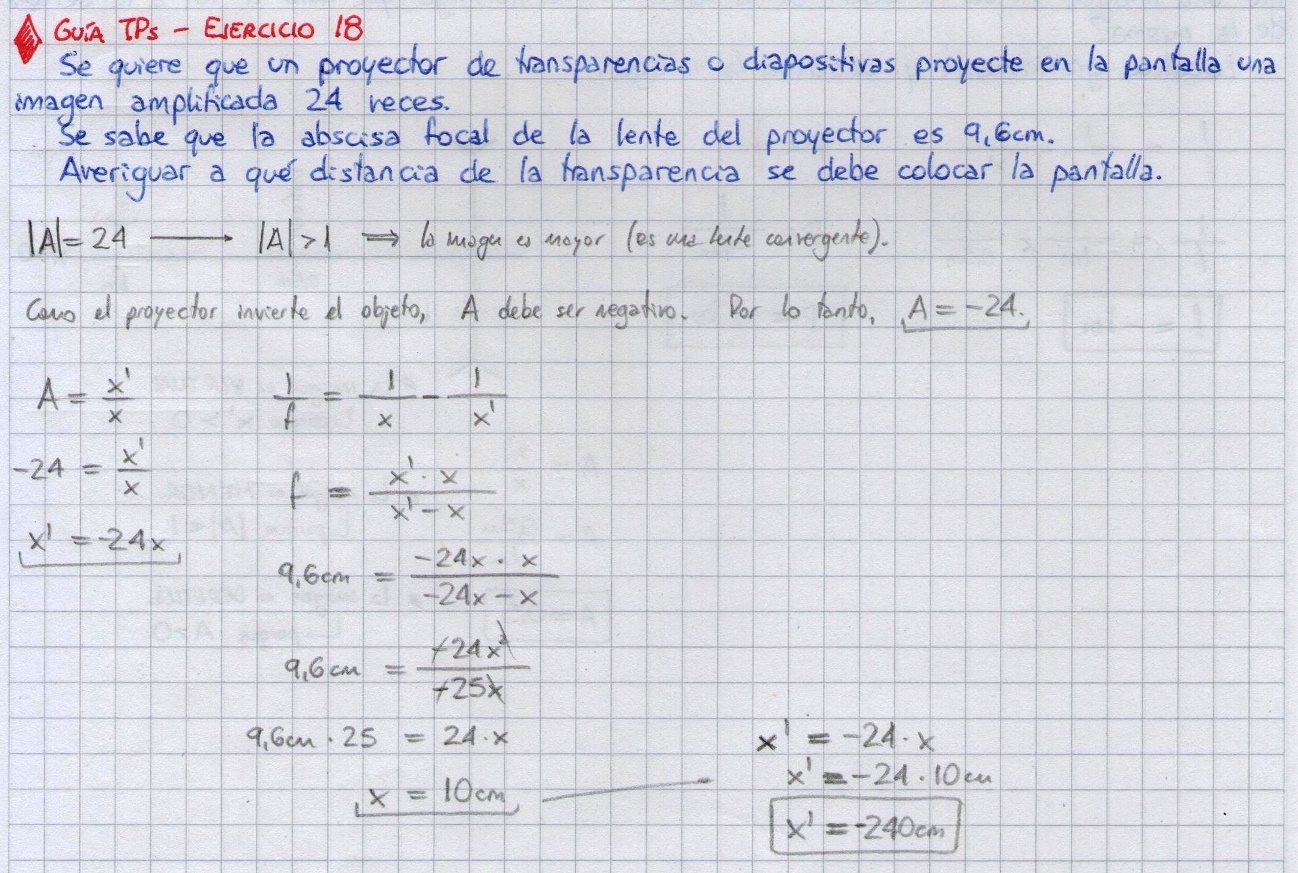 GUÍA TPs - EJERCICIO 18
Se quiere que un proyector de transparencias o diapositivas proyecte en la pantalla una
imagen amplificada 24 veces.
Se sabe que la abscisa focal de la lente del proyector es 9,6cm.
Averiguar a qué distancia de la transparencia se debe colocar la pantalla.
|A| = 24 ⟶ |A| > 1 ⟹ la imagen es mayor (es una lente convergente).
Como el proyector invierte el objeto, A debe ser negativo. Por lo tanto, A = -24.
A = x'/x
1/f = 1/x - 1/x'
-24 = x'/x
f = x' · x / x' - x
x' = -24x
9,6cm = -24x · x / -24x - x
9,6cm = -24x² / -25x
9,6cm · 25 = 24 · x
x = 10cm
x' = -24 · x
x' = -24 · 10cm
x' = -240cm